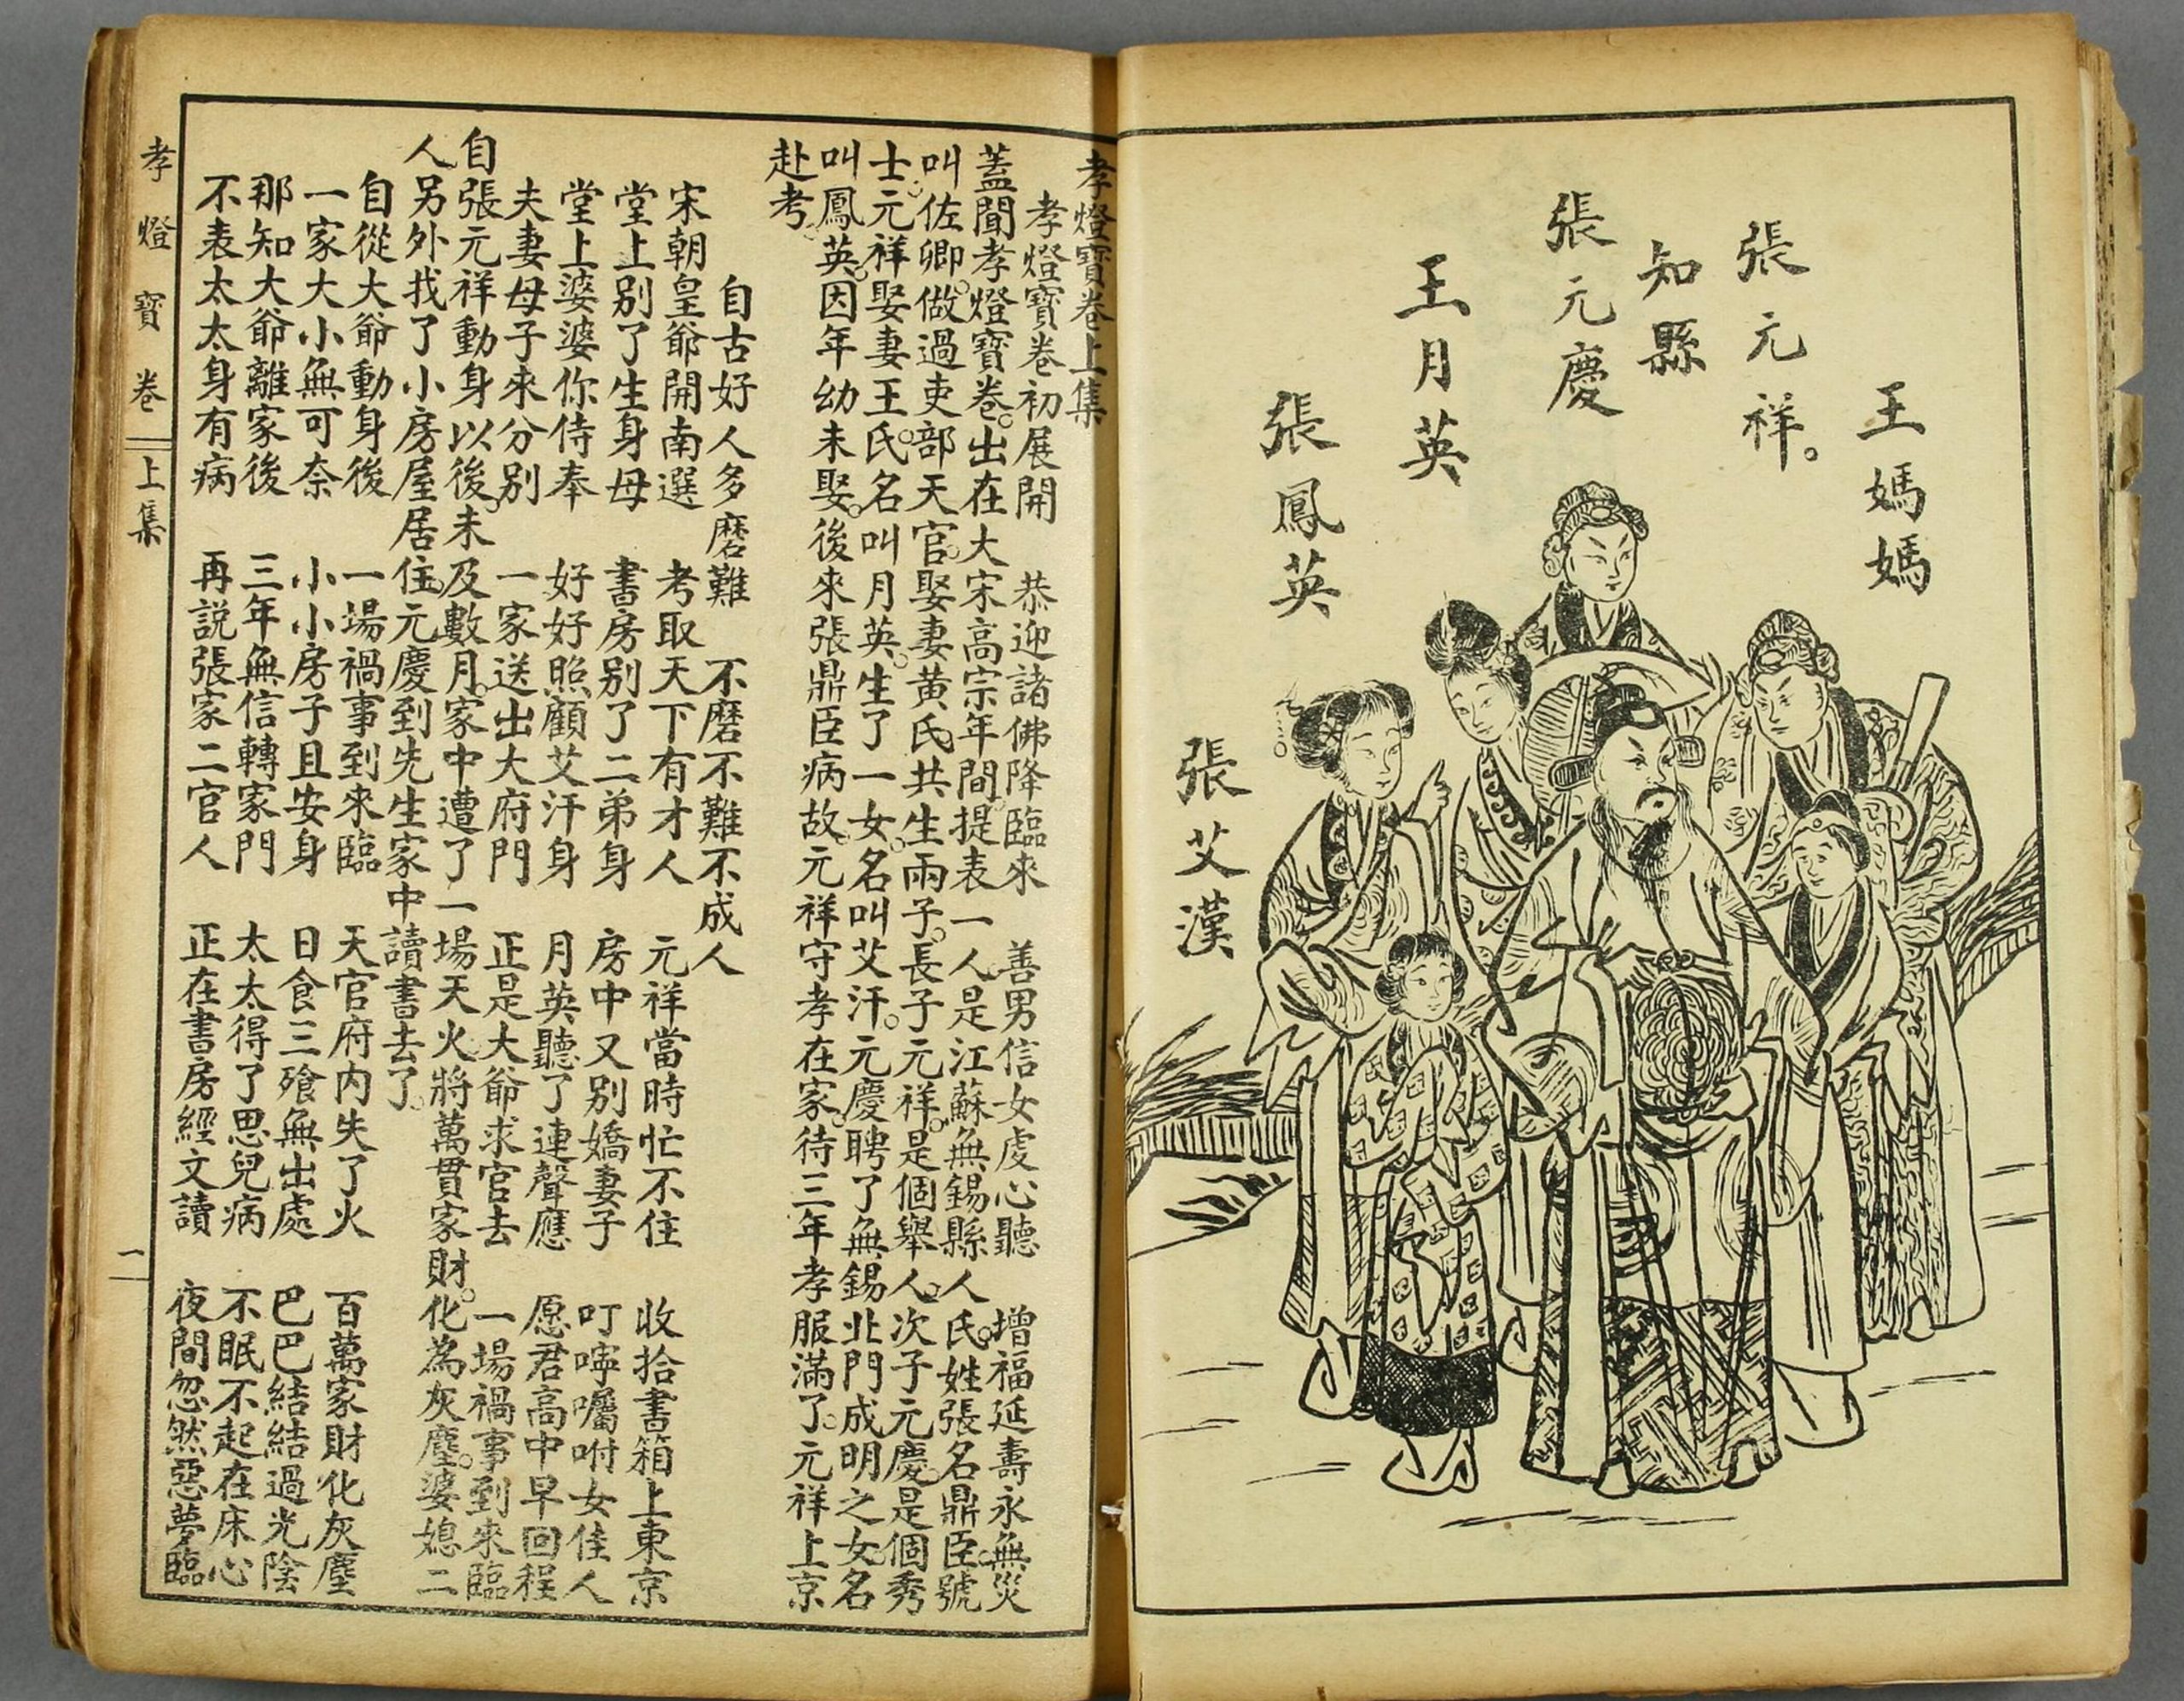 王媽媽
張元祥。
知縣
張元慶
王月英
張鳳英
張艾漢
孝燈寶卷上集
孝燈寶卷初展開　恭迎諸佛降臨來　善男信女虔心聽　增福延壽永無災
蓋聞孝燈寶卷。出在大宋高宗年間。提表一人。是江蘇無錫縣人氏。姓張名鼎臣。號
叫佐卿。做過吏部天官。娶妻黃氏。共生兩子。長子元祥。是個舉人。次子元慶。是個秀
士。元祥娶妻王氏。名叫月英。生了一女。名叫艾汗。元慶聘了無錫北門成明之女。名
叫鳳英。因年幼未娶。後來張鼎臣病故。元祥守孝在家。待三年孝服滿了。元祥上京
赴考。
自古好人多磨難　不磨不難不成人
宋朝皇爺開南選　考取天下有才人　元祥當時忙不住　收拾書箱上東京
堂上別了生身母　書房別了二弟身　房中又別嬌妻子　叮嚀囑咐女佳人
堂上婆婆你侍奉　好好照顧艾汗身　月英聽了連聲應　愿君高中早回程
夫妻母子來分別　一家送出大府門　正是大爺求官去　一場禍事到來臨
自張元祥動身以後。未及數月。家中遭了一場天火。將萬貫家財。化為灰塵。婆媳二
人另外找了小房屋居住。元慶到先生家中讀書去了。
自從大爺動身後　一場禍事到來臨　天官府內失了火　百萬家財化灰塵
一家大小無可奈　小小房子且安身　日食三飱無出處　巴巴結結過光陰
那知大爺離家後　三年無信轉家門　太太得了思兒病　不眠不起在床心
不表太太身有病　再説張家二官人　正在書房經文讀　夜間忽然惡夢臨
孝燈寶卷　上集　一